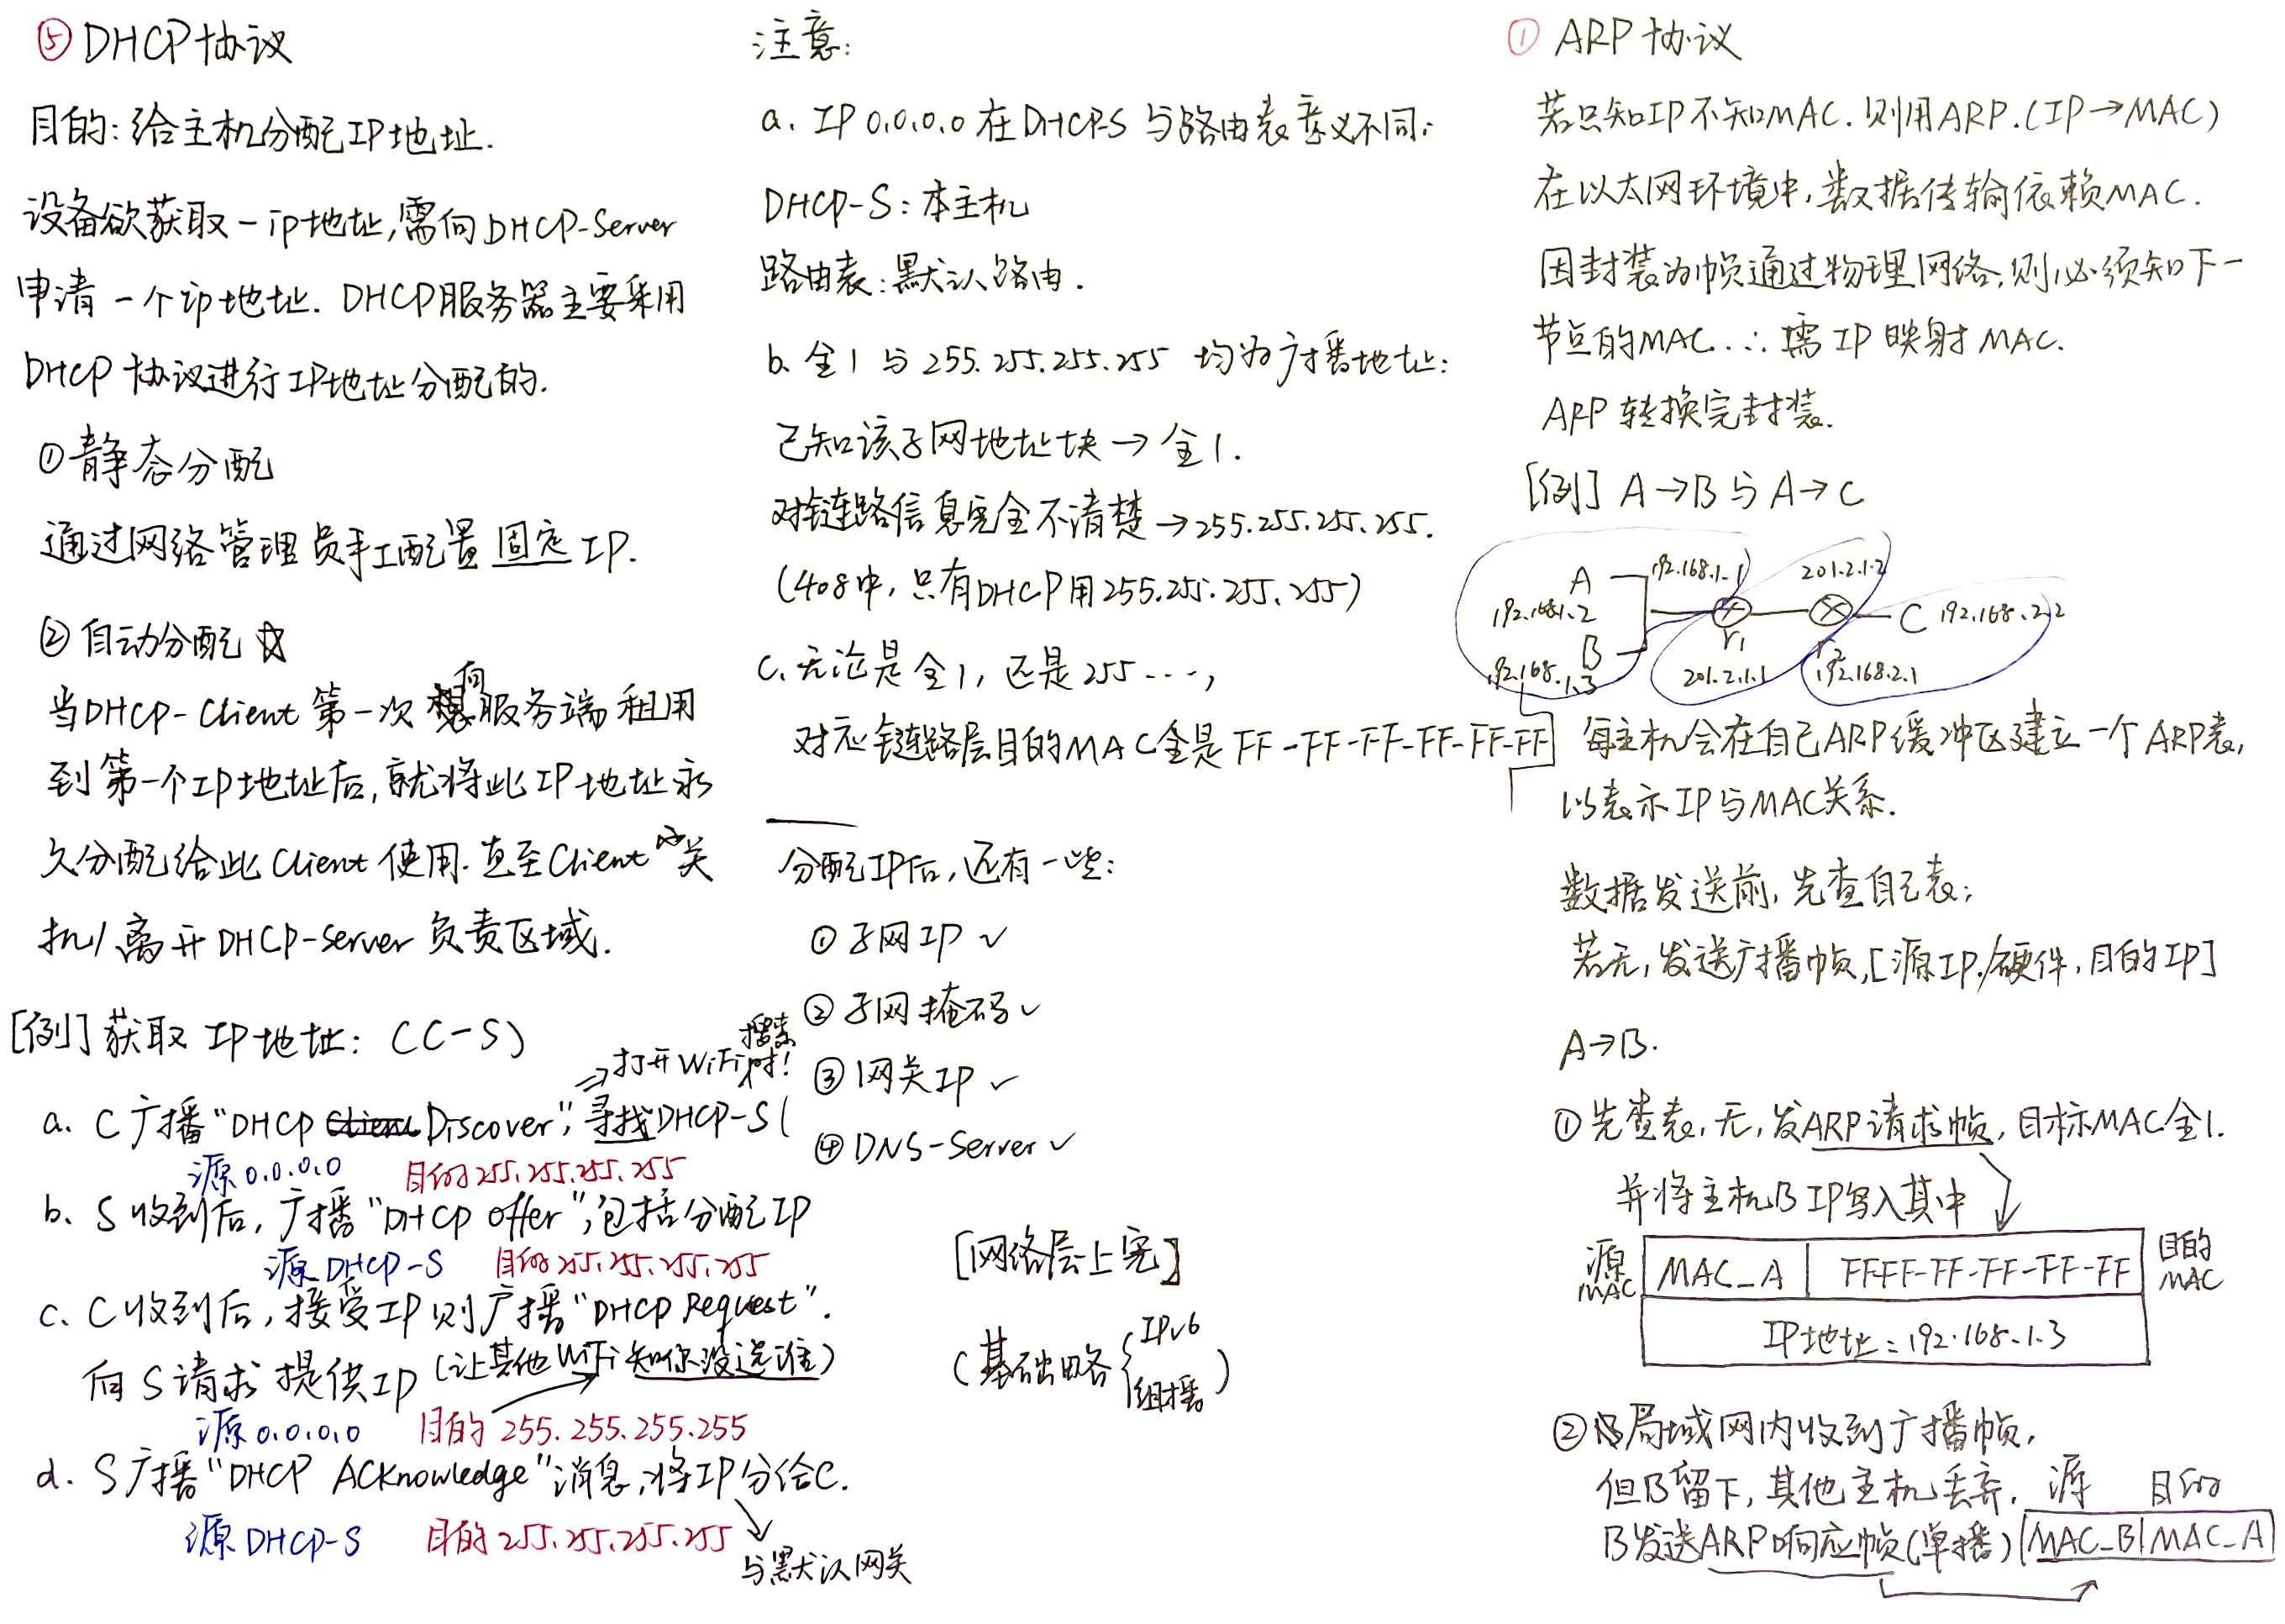 ⑤ DHCP协议
目的:给主机分配IP地址.
设备欲获取一ip地址,需向DHCP-Server
申请一个ip地址. DHCP服务器主要采用
DHCP协议进行IP地址分配的.
①静态分配
通过网络管理员手工配置固定IP.
②自动分配☆
当DHCP-Client第一次向服务端租用
到第一个IP地址后,就将此IP地址永
久分配给此Client使用.直至Client关
机/离开DHCP-Server负责区域.
[例]获取IP地址: (C-S)
⇒打开WiFi搜索时!
a. C广播"DHCP Discover",寻找DHCP-S(
源0.0.0.0 目的255.255.255.255
b. S收到后,广播"DHCP offer",包括分配IP
源DHCP-S 目的255.255.255.255
c. C收到后,接受IP则广播"DHCP Request".
向S请求提供IP(让其他WiFi知你没选谁)
源0.0.0.0 目的255.255.255.255
d. S广播"DHCP ACKnowledge"消息,将IP分给C.
源DHCP-S 目的255.255.255.255
与默认网关
注意:
a. IP 0.0.0.0在DHCP-S与路由表意义不同:
DHCP-S:本主机
路由表:默认路由.
b. 全1与255.255.255.255 均为广播地址:
已知该子网地址块→全1.
对链路信息完全不清楚→255.255.255.255.
(408中,只有DHCP用255.255.255.255)
c. 无论是全1,还是255...,
对应链路层目的MAC全是FF-FF-FF-FF-FF-FF
分配IP后,还有一些:
①子网IP ✓
②子网掩码✓
③网关IP ✓
④DNS-Server✓
[网络层上完]
(基础略{IPv6
组播)
① ARP协议
若只知IP不知MAC.则用ARP.(IP→MAC)
在以太网环境中,数据传输依赖MAC.
因封装为帧通过物理网络,则必须知下一
节点的MAC.∴需IP映射MAC.
ARP转换完封装.
[例] A→B与A→C
A
192.168.1.2
B
192.168.1.3
192.168.1.1
r1
201.2.1.1
201.2.1.2
r2
192.168.2.1
C 192.168.2.2
每主机会在自己ARP缓冲区建立一个ARP表,
以表示IP与MAC关系.
数据发送前,先查自己表;
若无,发送广播帧,[源IP/硬件,目的IP]
A→B.
①先查表,无,发ARP请求帧,目标MAC全1.
并将主机B IP写入其中
源MAC MAC_A FFFF-FF-FF-FF-FF 目的MAC
IP地址=192.168.1.3
②局域网内收到广播帧,
但B留下,其他主机丢弃.
源 目的
B发送ARP响应帧(单播) MAC_B|MAC_A